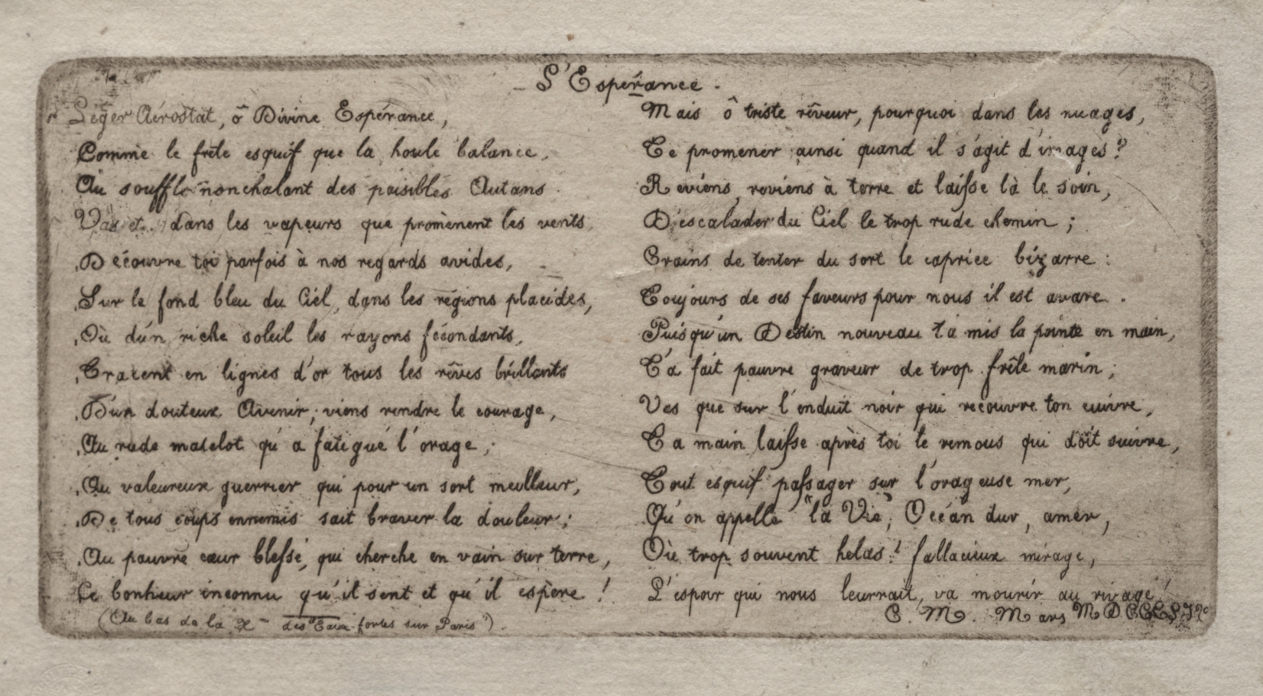 L'Espérance.
Léger Aérostat, ô Divine Espérance,
Comme le frêle esquif que la houle balance,
Au souffle nonchalant des paisibles Autans
Vas et.. dans les vapeurs que promènent les vents
Découvre toi parfois à nos regards avides,
Sur le fond bleu du Ciel, dans les régions placides,
Où d'un riche soleil les rayons fécondants,
Tracent en lignes d'or tous les rêves brillants
D'un douteux Avenir; viens rendre le courage,
Au rude matelot qu'a fatigué l'orage;
Au valeureux guerrier qui pour un sort meilleur,
De tous coups ennemis sait braver la douleur;
Au pauvre cœur blessé, qui cherche en vain sur terre,
Le bonheur inconnu qu'il sent et qu'il espère!
(Au bas de la X des Eaux fortes sur Paris).
Mais ô triste rêveur, pourquoi dans les nuages,
Te promener ainsi quand il s'agit d'images?
Reviens, reviens à terre et laisse là le soin,
D'escalader du Ciel le trop rude chemin;
Crains de tenter du sort le caprice bizarre:
Toujours de ses faveurs pour nous il est avare.
Puisqu'un Destin nouveau t'a mis la pointe en main,
T'a fait pauvre graveur de trop frêle marin;
Ves que sur l'enduit noir qui recouvre ton cuivre,
Ta main laisse après toi le remous qui doit suivre,
Tout esquif passager sur l'orageuse mer,
Qu'on appelle "la Vie", Océan dur, amer,
Où trop souvent helas! fallacieux mirage,
L'espoir qui nous leurrait, va mourir au rivage!
C. M. Mars